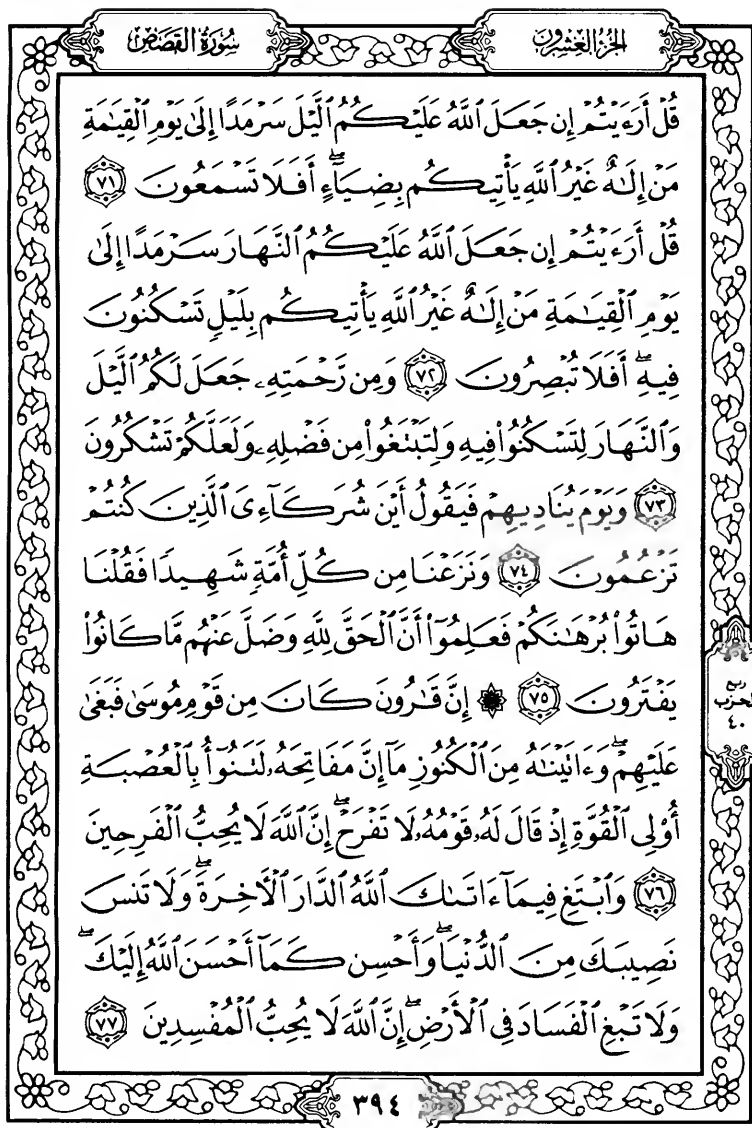 سُورَةُ القَصَصِ
الجُزْءُ العِشْرُونَ
قُلْ أَرَءَيْتُمْ إِن جَعَلَ ٱللَّهُ عَلَيْكُمُ ٱلَّيْلَ سَرْمَدًا إِلَىٰ يَوْمِ ٱلْقِيَٰمَةِ
مَنْ إِلَٰهٌ غَيْرُ ٱللَّهِ يَأْتِيكُم بِضِيَآءٍ ۖ أَفَلَا تَسْمَعُونَ ﴿٧١﴾
قُلْ أَرَءَيْتُمْ إِن جَعَلَ ٱللَّهُ عَلَيْكُمُ ٱلنَّهَارَ سَرْمَدًا إِلَىٰ
يَوْمِ ٱلْقِيَٰمَةِ مَنْ إِلَٰهٌ غَيْرُ ٱللَّهِ يَأْتِيكُم بِلَيْلٍ تَسْكُنُونَ
فِيهِ ۖ أَفَلَا تُبْصِرُونَ ﴿٧٢﴾ وَمِن رَّحْمَتِهِۦ جَعَلَ لَكُمُ ٱلَّيْلَ
وَٱلنَّهَارَ لِتَسْكُنُوا۟ فِيهِ وَلِتَبْتَغُوا۟ مِن فَضْلِهِۦ وَلَعَلَّكُمْ تَشْكُرُونَ
﴿٧٣﴾ وَيَوْمَ يُنَادِيهِمْ فَيَقُولُ أَيْنَ شُرَكَآءِىَ ٱلَّذِينَ كُنتُمْ
تَزْعُمُونَ ﴿٧٤﴾ وَنَزَعْنَا مِن كُلِّ أُمَّةٍ شَهِيدًا فَقُلْنَا
هَاتُوا۟ بُرْهَٰنَكُمْ فَعَلِمُوٓا۟ أَنَّ ٱلْحَقَّ لِلَّهِ وَضَلَّ عَنْهُم مَّا كَانُوا۟
يَفْتَرُونَ ﴿٧٥﴾ ۞ إِنَّ قَٰرُونَ كَانَ مِن قَوْمِ مُوسَىٰ فَبَغَىٰ
عَلَيْهِمْ ۖ وَءَاتَيْنَٰهُ مِنَ ٱلْكُنُوزِ مَآ إِنَّ مَفَاتِحَهُۥ لَتَنُوٓأُ بِٱلْعُصْبَةِ
أُو۟لِى ٱلْقُوَّةِ إِذْ قَالَ لَهُۥ قَوْمُهُۥ لَا تَفْرَحْ ۖ إِنَّ ٱللَّهَ لَا يُحِبُّ ٱلْفَرِحِينَ
﴿٧٦﴾ وَٱبْتَغِ فِيمَآ ءَاتَىٰكَ ٱللَّهُ ٱلدَّارَ ٱلْءَاخِرَةَ ۖ وَلَا تَنسَ
نَصِيبَكَ مِنَ ٱلدُّنْيَا ۖ وَأَحْسِن كَمَآ أَحْسَنَ ٱللَّهُ إِلَيْكَ ۖ
وَلَا تَبْغِ ٱلْفَسَادَ فِى ٱلْأَرْضِ ۖ إِنَّ ٱللَّهَ لَا يُحِبُّ ٱلْمُفْسِدِينَ ﴿٧٧﴾
ربع
الحزب
٤٠
٣٩٤